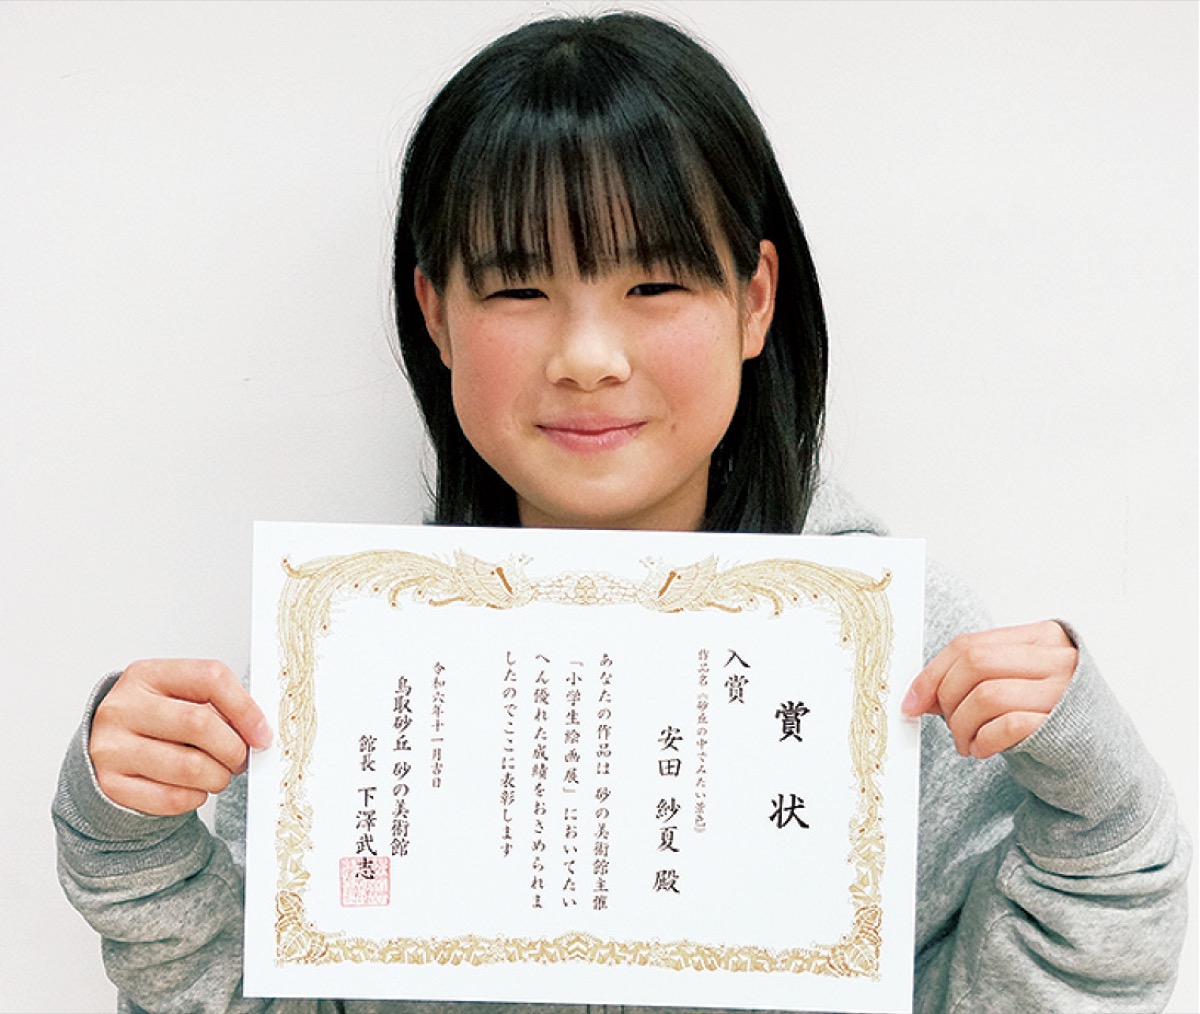 賞状
入賞
作品名《砂丘の中でみたい景色》
安田 紗夏 殿
あなたの作品は 砂の美術館主催
「小学生絵画展」においてたい
へん優れた成績をおさめられま
したのでここに表彰します
令和六年十一月吉日
鳥取砂丘 砂の美術館
館長 下澤武志